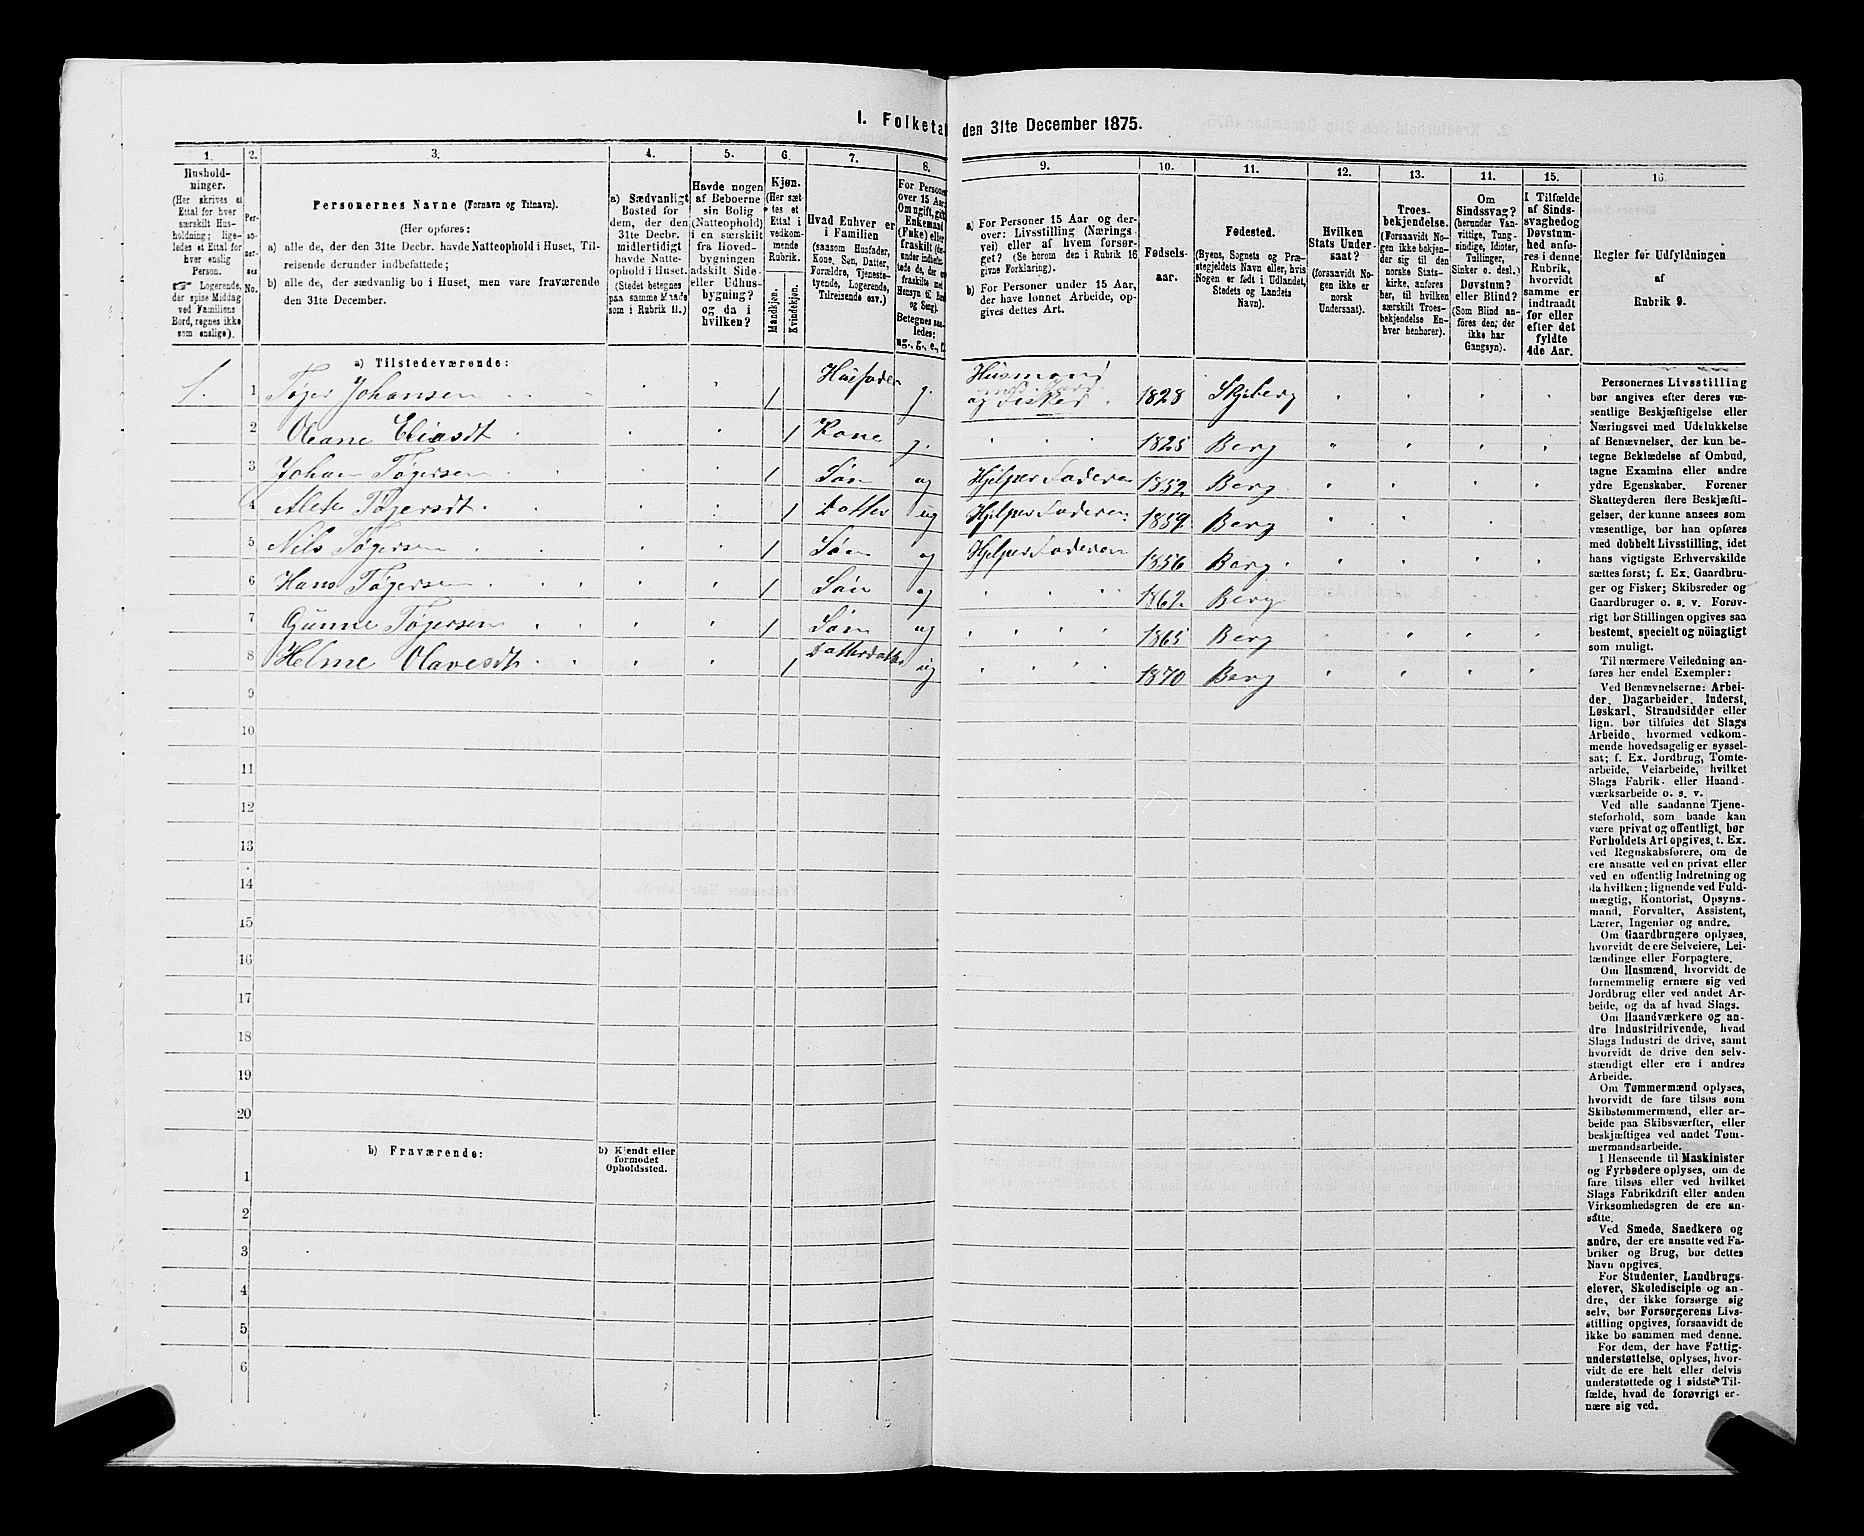 1. Folketal den 31te December 1875.
1. 2. 3. 4. 5. 6. 7. 8. 9. 10. 11. 12. 13. 14. 15. 16.
Hushold-
ninger.
(Her skrives et
Ettal for hver
særskilt Hus-
holdning; lige-
ledes et Ettal for
hver enslig
Person.
☞ Logerende,
der spise Middag
ved Familiens
Bord, regnes ikke
som enslige).
Per-
so-
ner-
nes
No.
Personernes Navne (Fornavn og Tilnavn).
(Her opføres:
a) alle de, der den 31te Decbr. havde Natteophold i Huset, Til-
reisende derunder indbefattede;
b) alle de, der sædvanlig bo i Huset, men vare fraværende
den 31te December.
a) Sædvanligt
Bosted for
dem, der den
31te Decbr.
midlertidigt
havde Natte-
ophold i Huset.
(Stedet betegnes
paa samme Maade
som i Rubrik 11.)
Havde nogen
af Beboerne
sin Bolig
(Natteophold)
i en særskilt
fra Hoved-
bygningen
adskilt Side-
eller Udhus-
bygning?
og da i
hvilken?
Kjøn.
(Her sæt-
tes et
Ettal i
vedkom-
mende
Rubrik.
Mandkjøn.
Kvindekjøn.
Hvad Enhver er
i Familien
(saasom Husfader,
Kone, Søn, Datter,
Forældre, Tjeneste-
tyende, Logerende,
Tilreisende osv.)
For Personer
over 15 Aar:
Om ugift, gift,
Enkemand
(Enke) eller
fraskilt
Betegnes saa-
ledes:
ug., g., e., f.
a) For Personer 15 Aar og der-
over: Livsstilling (Nærings
vei) eller af hvem forsør-
get? (Se herom den i Rubrik 16
givne Forklaring).
b) For Personer under 15 Aar,
der have lønnet Arbeide, op-
gives dettes Art.
Fødsels-
aar.
Fødested.
(Byens, Sognets og Præ-
stegjeldets Navn eller, hvis
Nogen er født i Udlandet,
Stedets og Landets
Navn).
Hvilken
Stats Under-
saat?
(forsaavidt No-
gen ikke er
norsk
Undersaat).
Troes-
bekjendelse.
(Forsaavidt No-
gen ikke bekjen-
der sig til den
norske Stats-
kirke, anføres
her, til hvilken
særskilt Troes-
bekjendelse En-
hver henhører).
Om
Sindssvag?
(herunder Van-
vittige, Tung-
sindige, Idioter,
Tullinger,
Sinker o. desl.)
Døvstum?
eller Blind?
(Som Blind an-
føres den, der
ikke har
Gangsyn).
I Tilfælde
af Sinds-
svaghed og
Døvstum-
hed anfø-
res i denne
Rubrik,
hvorvidt
samme er
indtraadt
før eller
efter det
fyldte
4de Aar.
Regler for Udfyldningen
af
Rubrik 9.
a) Tilstedeværende:
1. 1 Tøger Johansen 1 Husfader g. Husmand med Jord og Fisker 1828 Skjeberg
2 Oleane Eliasdt 1 Kone g. 1825 Berg
3 Johan Tøgersen 1 Søn ug Hjelper Faderen 1852 Berg
4 Alete Tøgersdt 1 Datter ug Hjelper Faderen 1859 Berg
5 Nils Tøgersen 1 Søn ug Hjelper Faderen 1856 Berg
6 Hans Tøgersen 1 Søn ug 1862 Berg
7 Gunne Tøgersen 1 Søn ug 1865 Berg
8 Helme Olavesdt 1 Datterdatter ug 1870 Berg
9
10
11
12
13
14
15
16
17
18
19
20
b) Fraværende:
b) Kjendt eller
formodet
Opholdssted.
1
2
3
4
5
6
Personernes Livsstilling
bør angives efter deres væ-
sentlige Beskjæftigelse eller
Næringsvei med Udelukkelse
af Benævnelser, der kun be-
tegne Beklædelse af Ombud,
tagne Examina eller andre
ydre Egenskaber. Forener
Skatteyderen flere Beskjæfti-
gelser, der kunne ansees som
væsentlige, bør han opføres
med dobbelt Livsstilling, idet
hans vigtigste Erhvervskilde
sættes først; f. Ex. Gaardbru-
ger og Fisker; Skibsreder og
Gaardbruger o. s. v. Forøv-
rigt bør Stillingen opgives saa
bestemt, specielt og nøiagtigt
som muligt.
Til nærmere Veiledning an-
føres her endel Exempler:
Ved Benævnelserne: Arbei-
der, Dagarbeider, Inderst,
Løskarl, Strandsidder eller
lign. bør tilføies det Slags
Arbeide, hvormed vedkom-
mende hovedsagelig er syssel-
sat; f. Ex. Jordbrug, Tomte-
arbeide, Veiarbeide, hvilket
Slags Fabrik- eller Haand-
værksarbeide o. s. v.
Ved alle saadanne Tjene-
steforhold, som baade kan
være privat og offentligt, bør
Forholdets Art opgives, t. Ex.
ved Regnskabsførere, om de
ere ansatte ved en privat eller
ved en offentlig Indretning og
da hvilken; lignende ved Fuld-
mægtig, Kontorist, Opsyns-
mand, Forvalter, Assistent,
Lærer, Ingeniør og andre.
Om Gaardbrugere oplyses,
hvorvidt de ere Selveiere, Lei-
lændinge eller Forpagtere.
Om Husmænd, hvorvidt de
fornemmelig ernære sig ved
Jordbrug eller ved andet Ar-
beide, og da af hvad Slags.
Om Haandværkere og an-
dre Industridrivende, hvad
Slags Industri de drive, samt
hvorvidt de drive den selv-
stændigt eller ere i andres
Arbeide.
Om Tømmermænd oplyses,
hvorvidt de fare tilsøs som
Skibstømmermænd, eller ar-
beide paa Skibsværfter, eller
beskjæftiges ved andet Tøm-
mermandsarbeide.
I Henseende til Maskinister
og Fyrbødere oplyses, om de
fare tilsøs eller ved hvilket
Slags Fabrikdrift eller anden
Virksomhedsgren de ere an-
satte.
Ved Smede, Snedkere og
andre, der ere ansatte ved Fa-
briker og Brug, bør dettes
Navn opgives.
For Studenter, Landbrugs-
elever, Skoledisciple og an-
dre, der ikke forsørge sig
selv, bør Forsørgerens Livs-
stilling opgives, forsaavidt de
ikke bo sammen med denne.
For dem, der have Fattig-
understøttelse, oplyses, hvor-
vidt de ere helt eller delvis
understøttede og i sidste Til-
fælde, hvad de forøvrigt er-
nære sig ved.